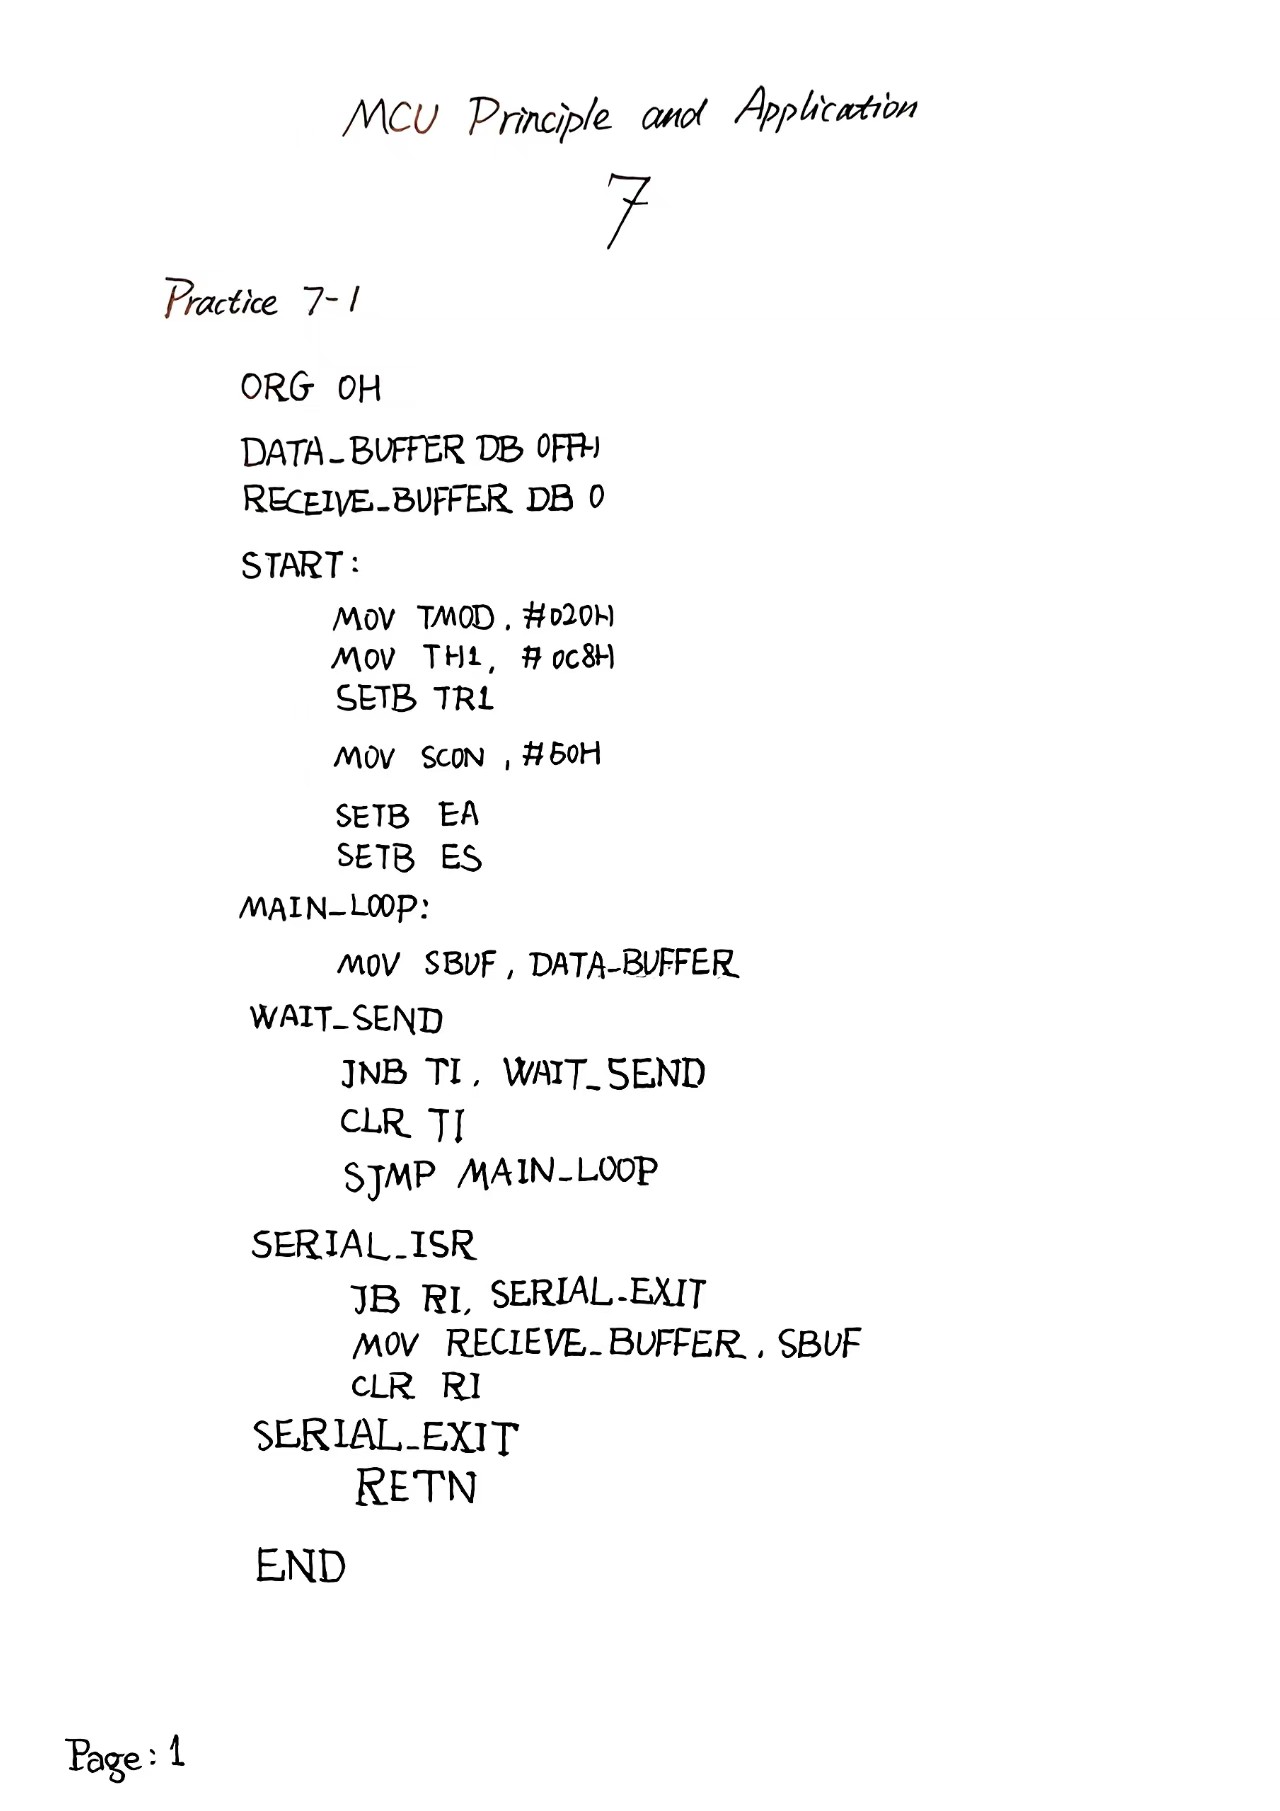 MCU Principle and Application
7
Practice 7-1
ORG 0H
DATA_BUFFER DB 0FFH
RECEIVE_BUFFER DB 0
START:
MOV TMOD, #020H
MOV TH1, #0C8H
SETB TR1
MOV SCON, #50H
SETB EA
SETB ES
MAIN_LOOP:
MOV SBUF, DATA_BUFFER
WAIT_SEND
JNB TI, WAIT_SEND
CLR TI
SJMP MAIN_LOOP
SERIAL_ISR
JB RI, SERIAL_EXIT
MOV RECIEVE_BUFFER, SBUF
CLR RI
SERIAL_EXIT
RETN
END
Page: 1